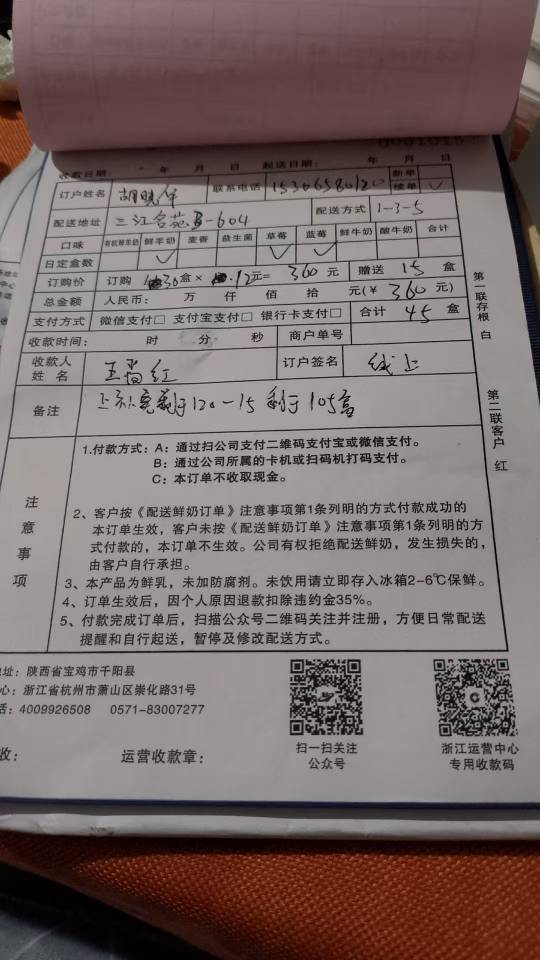 收款日期： 年 月 日 起送日期： 年 月 日 新单
订户姓名 胡晓华 联系电话 15306580120 续单 ✓
配送地址 三江名苑B-604 配送方式 1-3-5
口味 有机鲜羊奶 鲜羊奶 麦香 益生菌 草莓 蓝莓 鲜牛奶 酸牛奶 合计
日定盒数 ✓ ✓ ✓
订购价 订购 30盒× 12元= 360元 赠送 15 盒
总金额 人民币： 万 仟 佰 拾 元(￥ 360元)
支付方式 微信支付□ 支付宝支付□ 银行卡支付□ 合计 45 盒
收款时间： 时 分 秒 商户单号
收款人姓名 王 红 订户签名 线上
备注 120-15 105
第一联存根 白
第二联客户 红
注意事项
1.付款方式：A：通过扫公司支付二维码支付宝或微信支付。
B：通过公司所属的卡机或扫码机打码支付。
C：本订单不收取现金。
2、客户按《配送鲜奶订单》注意事项第1条列明的方式付款成功的
本订单生效，客户未按《配送鲜奶订单》注意事项第1条列明的方
式付款的，本订单不生效。公司有权拒绝配送鲜奶，发生损失的，
由客户自行承担。
3、本产品为鲜乳，未加防腐剂。未饮用请立即存入冰箱2-6℃保鲜。
4、订单生效后，因个人原因退款扣除违约金35%。
5、付款完成订单后，扫描公众号二维码关注并注册，方便日常配送
提醒和自行起送，暂停及修改配送方式。
址：陕西省宝鸡市千阳县
心：浙江省杭州市萧山区崇化路31号
话：4009926508 0571-83007277
收： 运营收款章：
扫一扫关注
公众号
浙江运营中心
专用收款码